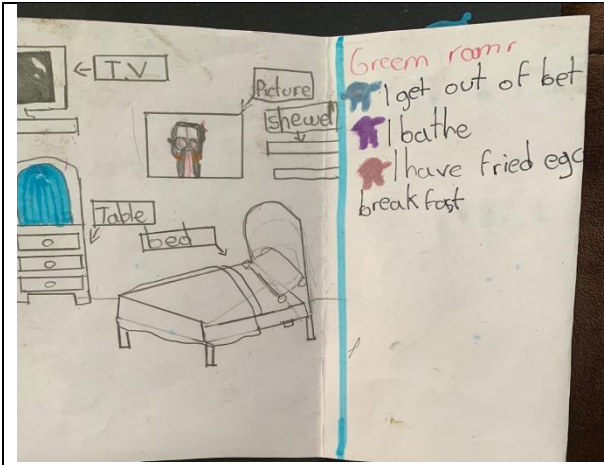 T.V
Picture
Ishewel
Table
bed
Greem roamr
I get out of bet
I bathe
I have fried egg
breakfast